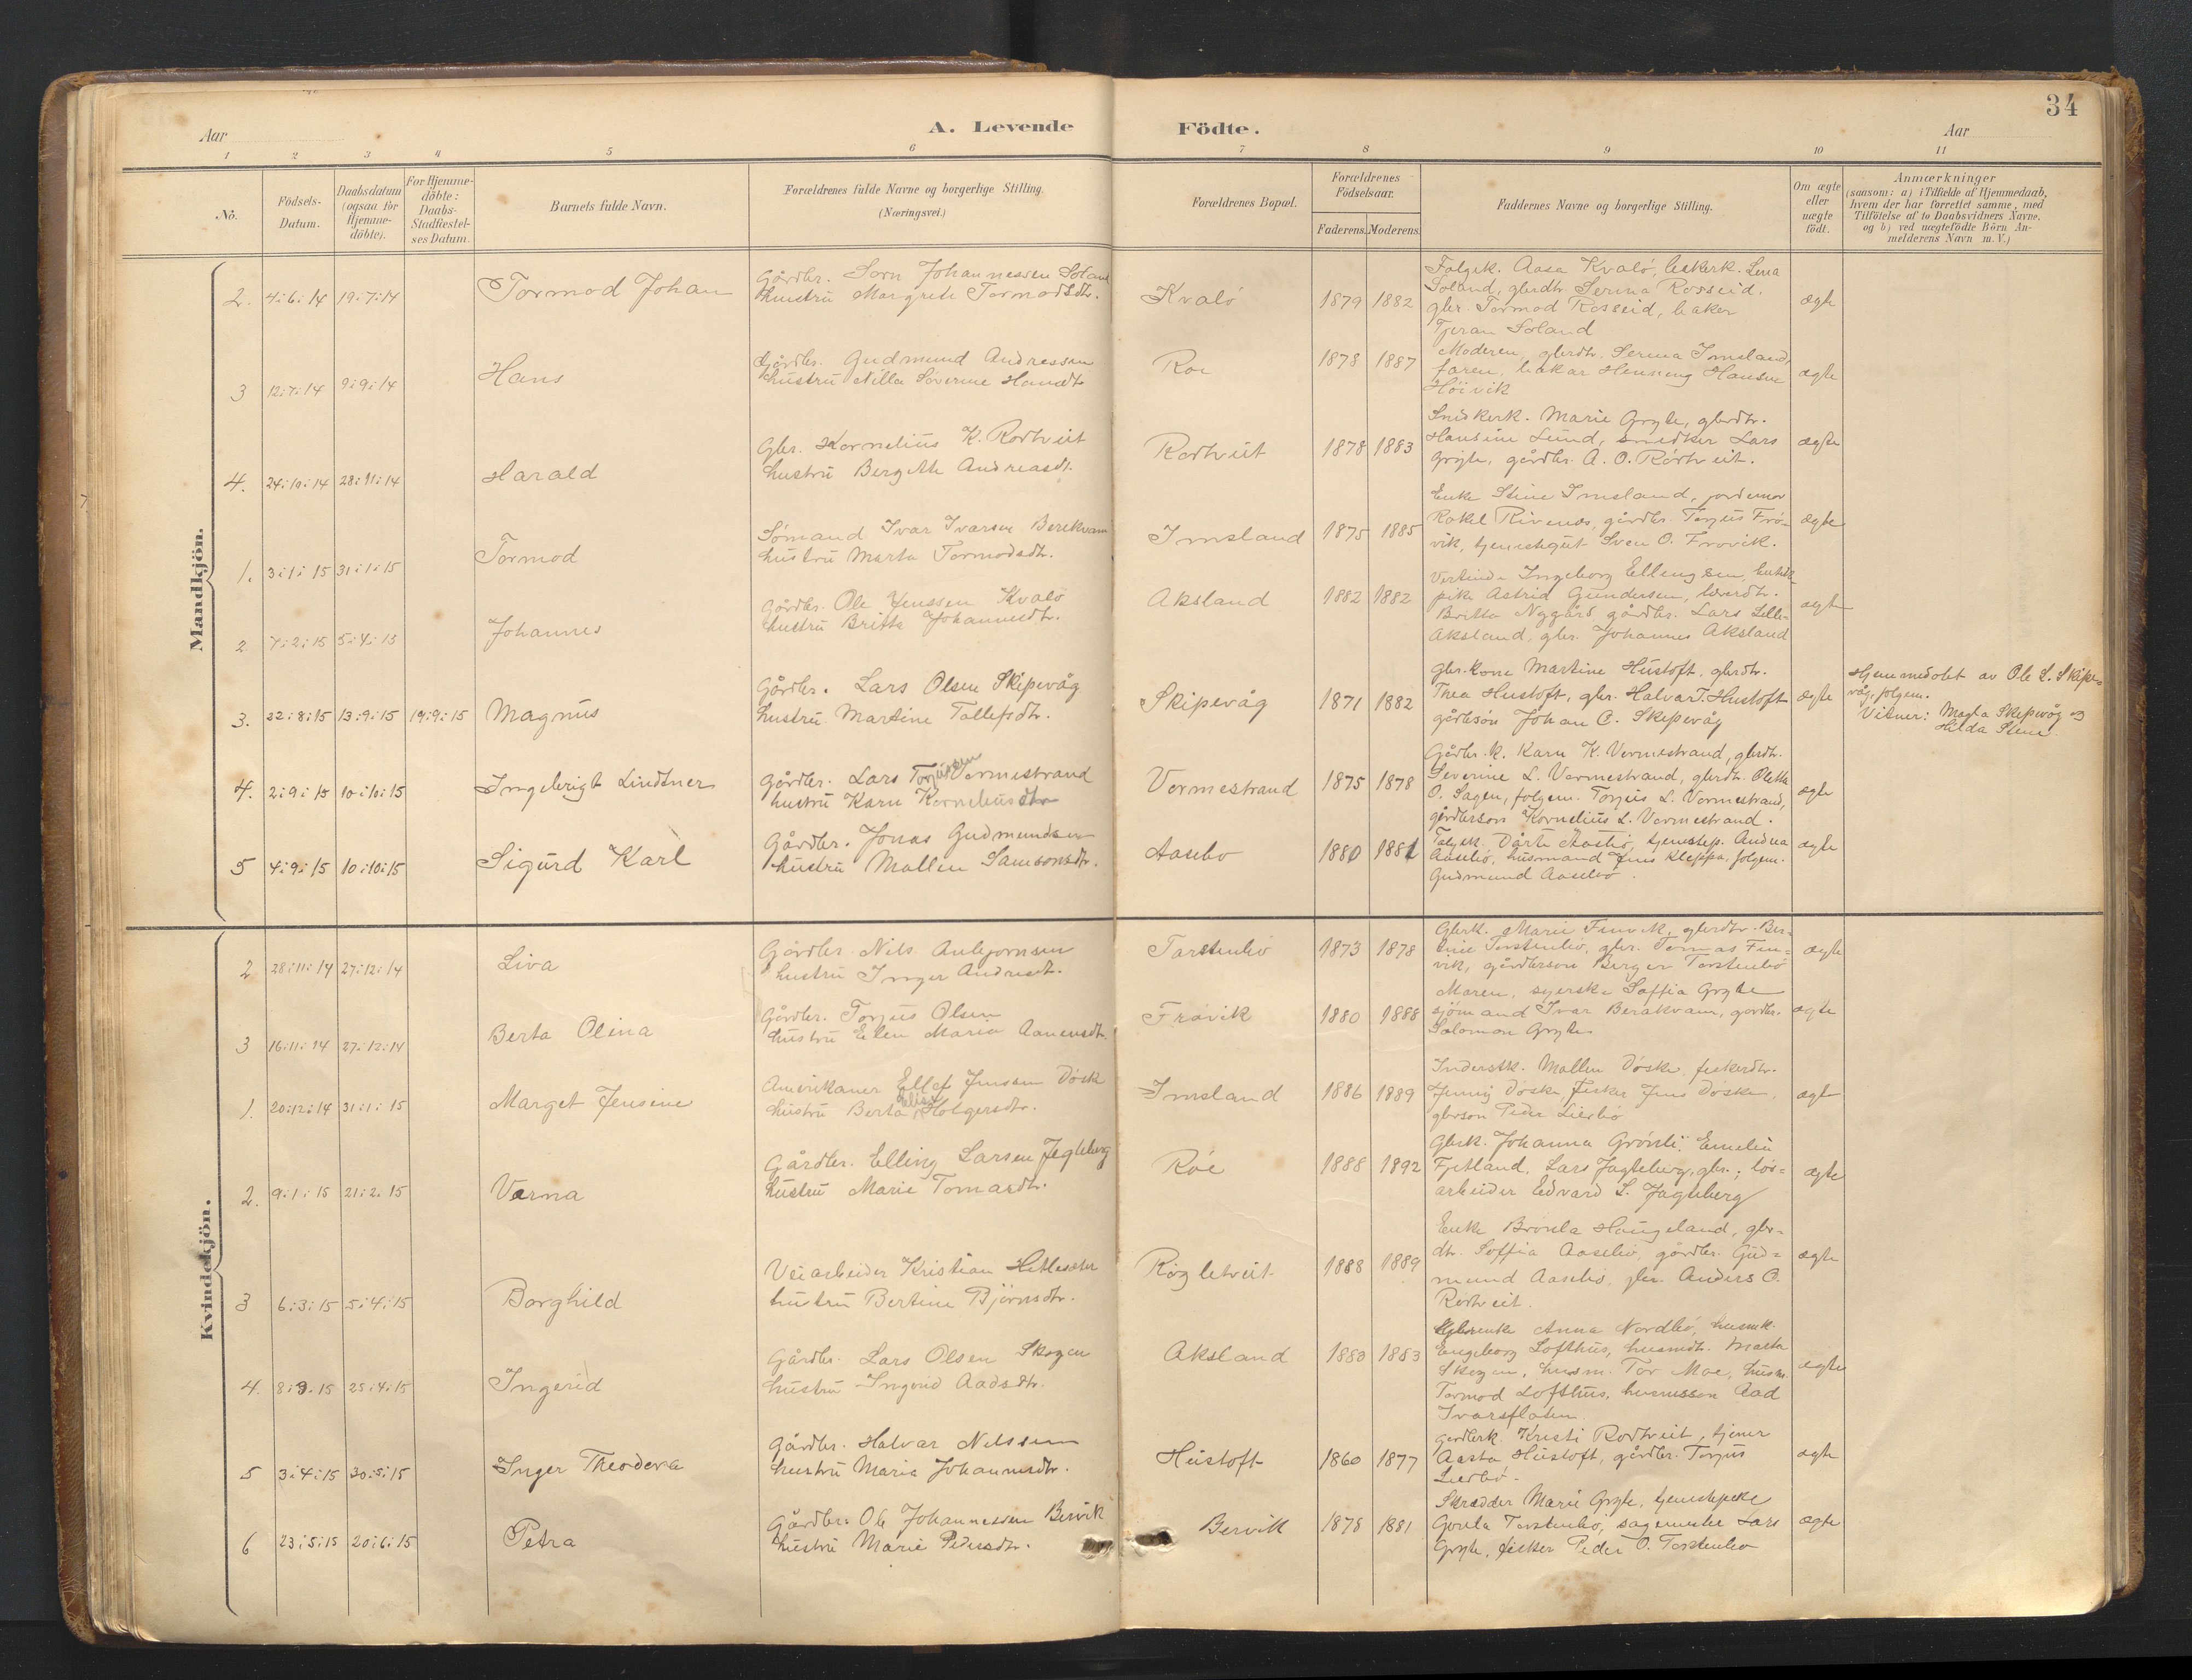 34
Aar
A. Levende Födte.
Aar
1 2 3 4 5 6 7 8 9 10 11
No.
Födsels-Datum.
Daabsdatum (ogsaa for Hjemme-döbte).
For Hjemme-döbte: Daabs-Stadfæstel-ses Datum.
Barnets fulde Navn.
Forældrenes fulde Navne og borgerlige Stilling.
(Næringsvei.)
Forældrenes Bopæl.
Forældrenes Födselsaar.
Faderens. Moderens.
Faddernes Navne og borgerlige Stilling.
Om ægte eller uægte födt.
Anmærkninger
(saasom: a) i Tilfælde af Hjemmedaab,
hvem der har forrettet samme, med
Tilföielse af to Daabsvidners Navne.
og b) ved uægtefödte Börn An-
melderens Navn m. V.)
Mandkjön.
2. 4:6:14 19:7:14 Tormod Johan
Gårdbr. Sorn Johannessen Soland
hustru Margrete Tormodsdtr.
Kvalö 1879 1882
Folgek. Aasa Kvalö, Lena
Soland, gbrdtr. Serina Rosseid.
gbr. Tormod Rosseid, baker
Tjeran Soland
ægte
3 12:7:14 9:9:14 Hans
Gårdbr. Gudmund Andressen
hustru Nilla Söverine Hansdtr
Roe 1878 1887
Moderen, gbrdtr. Serina Imsland,
faren, bakar Henning Hansen
Höivik
ægte
4. 24:10:14 28:11:14 Harald
Gbr. Kornelius K. Rodtveit
hustru Bergitte Andreasdt.
Rodtveit 1878 1883
Snidkerk. Marie Gryte, gbrdtr.
Hansine Lund, snedker Lars
Gryte, gårdbr. A. O. Rödtveit.
ægte
1. 3:1:15 31:1:15 Tormod
Sømand Ivar Ivarsen Berekvam
hustru Marta Tormodsdtr.
Imsland 1875 1885
Enke Stine Imsland, jordemor
Rakel Rivenes, gårdbr. Torjus Frö-
vik, tjenestegut Sven O. Frovik.
ægte
2 7:2:15 5:4:15 Johannes
Gårdbr. Ole Jenssen Kvalö
hustru Britta Johannesdtr.
Aksland 1882 1882
Vertinde Ingeborg Ellengsen,
pike Astrid Gundersen,
Britta Nygård gårdbr. Lars Lille-
Aksland, gbr. Johannes Aksland
ægte
3. 22:8:15 13:9:15 19:9:15 Magnus
Gårdbr. Lars Olsen Skipevåg
hustru Martine Tollefsdtr.
Skipevåg 1871 1882
gbr.kone Martine Hustoft, gbrdtr.
Thea Hustoft, gbr. Halvar T. Hustoft
gårbsön Johan C. Skipevåg
ægte
Hjemmedöbt av Ole L. Skipe-
våg, folgem.
Vitner: Magla Skipevåg og
Hilda Stene.
4. 2:9:15 10:10:15 Ingebrigt Lindtner
Gårdbr. Lars Torjussen Vormestrand
hustru Karn Korneliusdtr
Vormestrand 1875 1878
Gårdbr.k. Karn K. Vormestrand, gbrdtr.
Severine L. Vormestrand, gbrdtr. Olette
O. Sagen, folgem. Torjus L. Vormestrand,
gårdbrson Kornelius L. Vormestrand.
ægte
5 4:9:15 10:10:15 Sigurd Karl
Gårdbr. Jonas Gudmundsen
hustru Mallen Samsonsdtr.
Aasebo 1880 1881
Dårte Aasebö, tjenstep. Andrea
Aasebö, husmand Jens Kleppa, folgem.
Gudmund Aasebö.
ægte
Kvindekjön.
2 28:11:14 27:12:14 Liva
Gårdbr. Nils Anbjornsen
hustru Inger Andresdt.
Torstenbö 1873 1878
Gbrk. Marie Finvik, gbrdtr. Ber-
tine Torstenbö, gbr. Tomas Fin-
vik, gårdbrson Berger Torstenbö
ægte
3 16:11:14 27:12:14 Berta Olina
Gårdbr. Torjus Olsen
hustru Elen Maria Aanensdtr.
Frövik 1880 1888
Moren, syerske Soffia Gryte
sjömand Ivar Berakvam, gårdbr.
Salomon Gryte
ægte
1. 20:12:14 31:1:15 Marget Jensine
Amerikaner Ellef Jenssen Döske
hustru Berta Elise Holgersdtr.
Imsland 1886 1889
Inderstk. Mallen Döske, fiskerdtr.
Jenny Döske, fisker Jens Döske,
gbrson Peder Lierbö
ægte
2. 9:1:15 21:2:15 Verna
Gårdbr. Elling Larsen Jegteberg
hustru Marie Tomasdtr.
Röe 1888 1892
Gbrk. Johanna Grönli, Emelia
Fjetland, Lars Jagteberg, gbr.; lös-
arbeider Edvard L. Jagteberg
ægte
3 6:3:15 5:4:15 Borghild
Veiarbeider Kristian Hetlesæter
hustru Bertine Björnsdtr.
Rögletveit 1888 1889
Enke Bronla Haugeland, gbr-
dtr. Soffia Aasebö, gårdbr. Gud-
mund Aasebö, gbr. Anders O.
Rödtveit.
ægte
4. 8:3:15 25:4:15 Ingerid
Gårdbr. Lars Olsen Skogen
hustru Ingerid Aadsdtr.
Aksland 1880 1883
Gbrenke Anna Nordbö, husmk.
Engeborg Lofthus, husmdt. Marta
Skogen, husm. Tor Moe, husm.
Tormod Lofthus, husmsson Aad
Ivarsflaten.
ægte
5 3:4:15 30:5:15 Inger Theodora
Gårdbr. Halvar Nelssen
hustru Maria Johannesdtr.
Hustoft 1860 1877
Gardbrk. Kristi Rodtveit, tjener
Aasta Hustoft, gårdbr. Torjus
Lierbö.
ægte
6 23:5:15 20:6:15 Petra
Gårdbr. Ole Johannessen Bervik
hustru Marie Pedersdtr.
Bervik 1878 1881
Skrædder Marie Gryte, tjenestepeke
Gonla Torstenbö, sagemester Lars
Gryte, fisker Peder O. Torstenbö
ægte